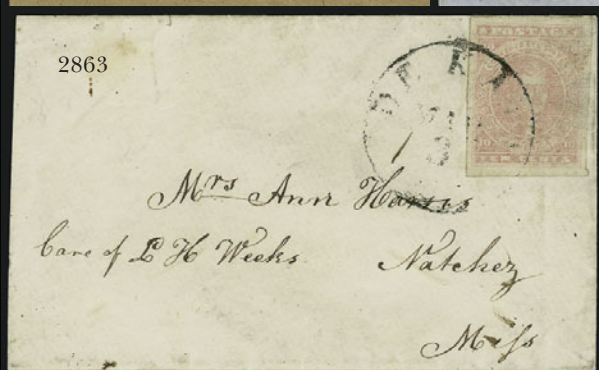 2863
POSTAGE
TEN CENTS
Mrs Ann Harris
Care of L H Weeks
Natchez
Miss